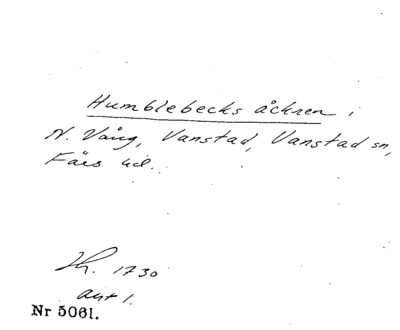 Humblebecks åcknen i
N. Vång, Vanstad, Vanstad sn,
Färs hd.
Lh. 1730
akt 1.
Nr 5061.